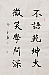 不語乾坤大
微笑學問深